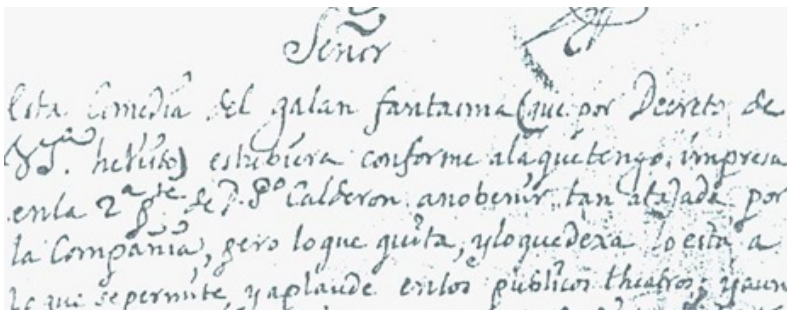 Señor
Esta Comedia del galan fantasma (que por Decreto de
he visto) estubiera conforme alaquetengo impresa
enla 2ª pte de D. Pº Calderon, anobenir tan atajada por
la Compañia, pero loque quita, yloquedexa loestá a
lo que sepermite, yaplaude enlos publicos theatros; yaun